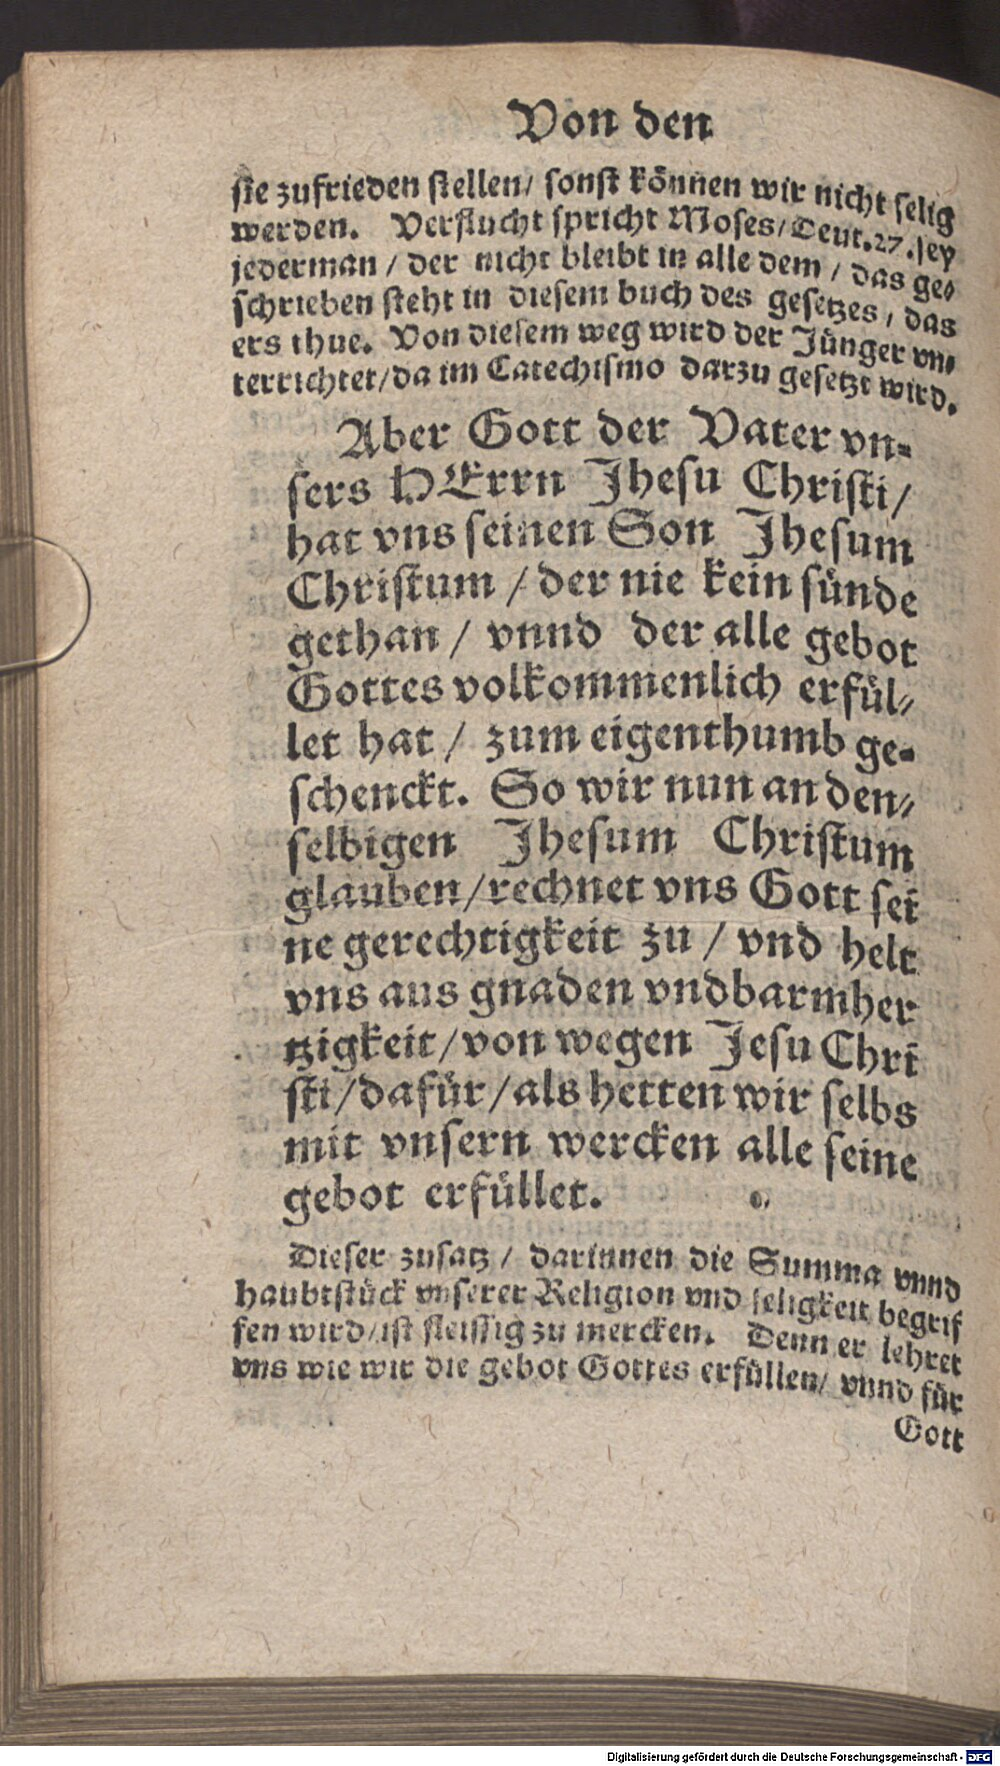 Von den
sie zufrieden stellen/ sonst können wir nicht selig
werden. Verflucht spricht Moses/Deut.27.sey
jederman / der nicht bleibt in alle dem / das ge-
schrieben steht in diesem buch des gesetzes / das
ers thue. Von diesem weg wird der Jünger vn-
terrichtet/da im Catechismo darzu gesetzt wird.
Aber Gott der Vater vn-
sers HErrn Jhesu Christi/
hat vns seinen Son Jhesum
Christum / der nie kein sünde
gethan / vnnd der alle gebot
Gottes volkommenlich erfül-
let hat / zum eigenthumb ge-
schenckt. So wir nun an den-
selbigen Jhesum Christum
glauben/rechnet vns Gott sei
ne gerechtigkeit zu / vnd helt
vns aus gnaden vndbarmher
tzigkeit/von wegen Jesu Chri
sti/dafür/als hetten wir selbs
mit vnsern wercken alle seine
gebot erfüllet.
Dieser zusatz / darinnen die Summa vnnd
haubtstück vnserer Religion vnd seligkeit begrif
fen wird/ist fleissig zu mercken. Denn er lehret
vns wie wir die gebot Gottes erfüllen/ vnnd für
Gott
Digitalisierung gefördert durch die Deutsche Forschungsgemeinschaft - DFG